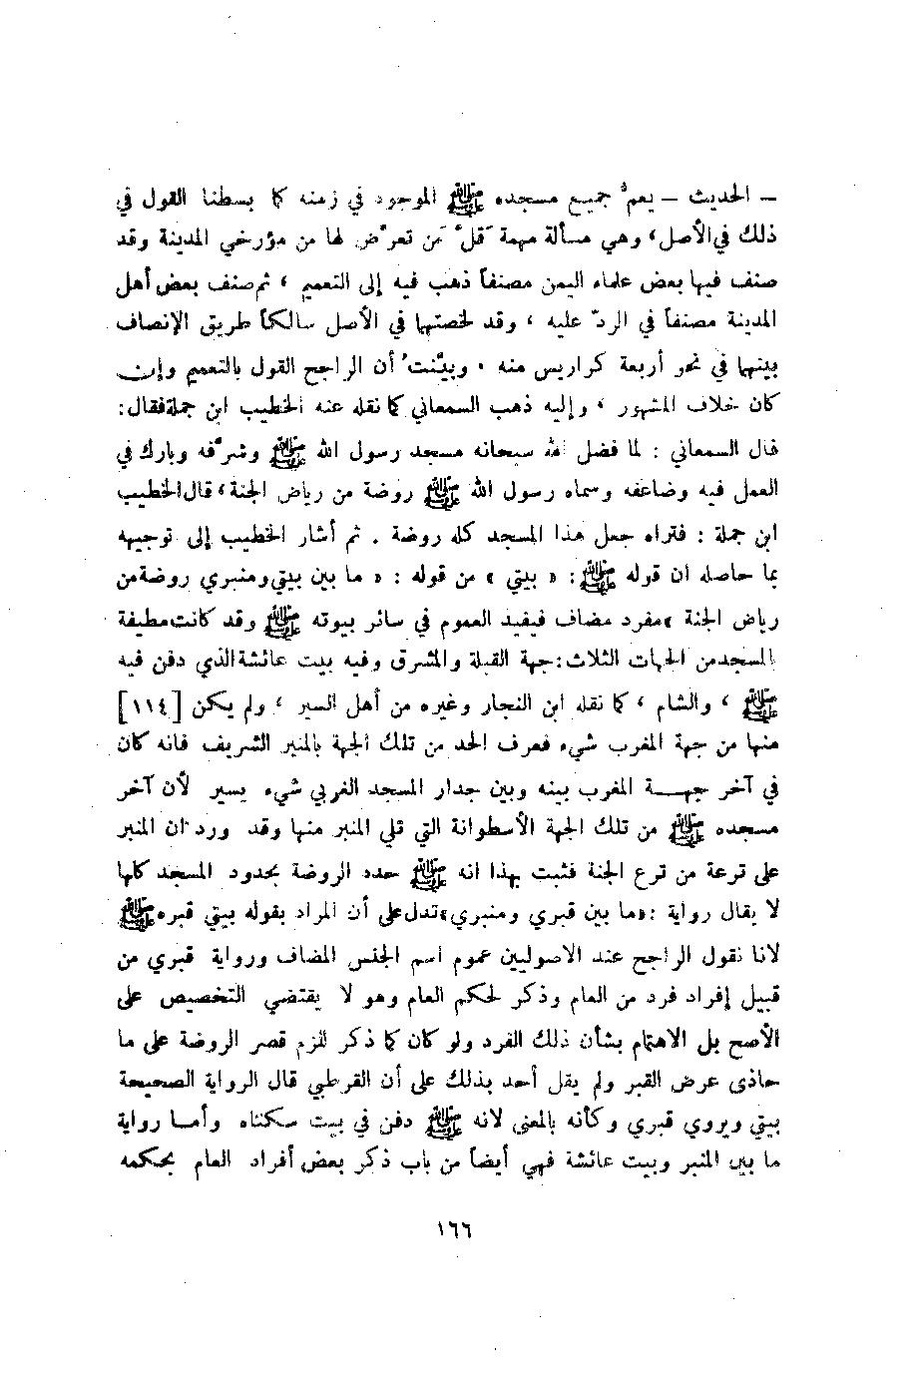 ـ الحديث ـ يعمُّ جميع مسجده ﷺ الموجود في زمنه كما بسطنا القول في
ذلك في الأصل، وهي مسألة مهمة قلَّ مَن تعرَّض لها من مؤرخي المدينة وقد
صنف فيها بعض علماء اليمن مصنفاً ذهب فيه إلى التعميم ، ثم صنف بعض أهل
المدينة مصنفاً في الردّ عليه ، وقد لخصتهما في الأصل سالكاً طريق الإنصاف
بينهما في نحو أربعة كراريس منه . وبيَّنتُ أن الراجح القول بالتعميم وإن
كان خلاف المشهور ، وإليه ذهب السمعاني كما نقله عنه الخطيب ابن جملة فقال:
قال السمعاني : لما فضل الله سبحانه مسجد رسول الله ﷺ وشرَّفه وبارك في
العمل فيه وضاعفه وسماه رسول الله ﷺ روضة من رياض الجنة، قال الخطيب
ابن جملة : فتراه جعل هذا المسجد كله روضة . ثم أشار الخطيب إلى توجيهه
بما حاصله ان قوله ﷺ : « بيتي » من قوله : « ما بين بيتي ومنبري روضة من
رياض الجنة » مفرد مضاف فيفيد العموم في سائر بيوته ﷺ وقد كانت مطيفة
بالمسجد من الجهات الثلاث: جهة القبلة والمشرق وفيه بيت عائشة الذي دفن فيه
ﷺ ، والشام ، كما نقله ابن النجار وغيره من أهل السير ، ولم يكن [١١٤]
منها من جهة المغرب شيء فعرف الحد من تلك الجهة بالمنبر الشريف فانه كان
في آخر جهـــة المغرب بينه وبين جدار المسجد الغربي شيء يسير لأن آخر
مسجده ﷺ من تلك الجهة الأسطوانة التي تلي المنبر منها وقد ورد ان المنبر
على ترعة من ترع الجنة فثبت بهذا انه ﷺ حدد الروضة بحدود المسجد كلها
لا يقال رواية : «ما بين قبري ومنبري» تدل على أن المراد بقوله بيتي قبره ﷺ
لانا نقول الراجح عند الاصوليين عموم اسم الجنس المضاف ورواية قبري من
قبيل إفراد فرد من العام وذكر لحكم العام وهو لا يقتضي التخصيص على
الأصح بل الاهتمام بشأن ذلك الفرد ولو كان كما ذكر للزم قصر الروضة على ما
حاذى عرض القبر ولم يقل أحد بذلك على أن القرطبي قال الرواية الصحيحة
بيتي ويروي قبري وكأنه بالمعنى لانه ﷺ دفن في بيت سكناه وأمــا رواية
ما بين المنبر وبيت عائشة فهي أيضاً من باب ذكر بعض أفراد العام بحكمه
١٦٦